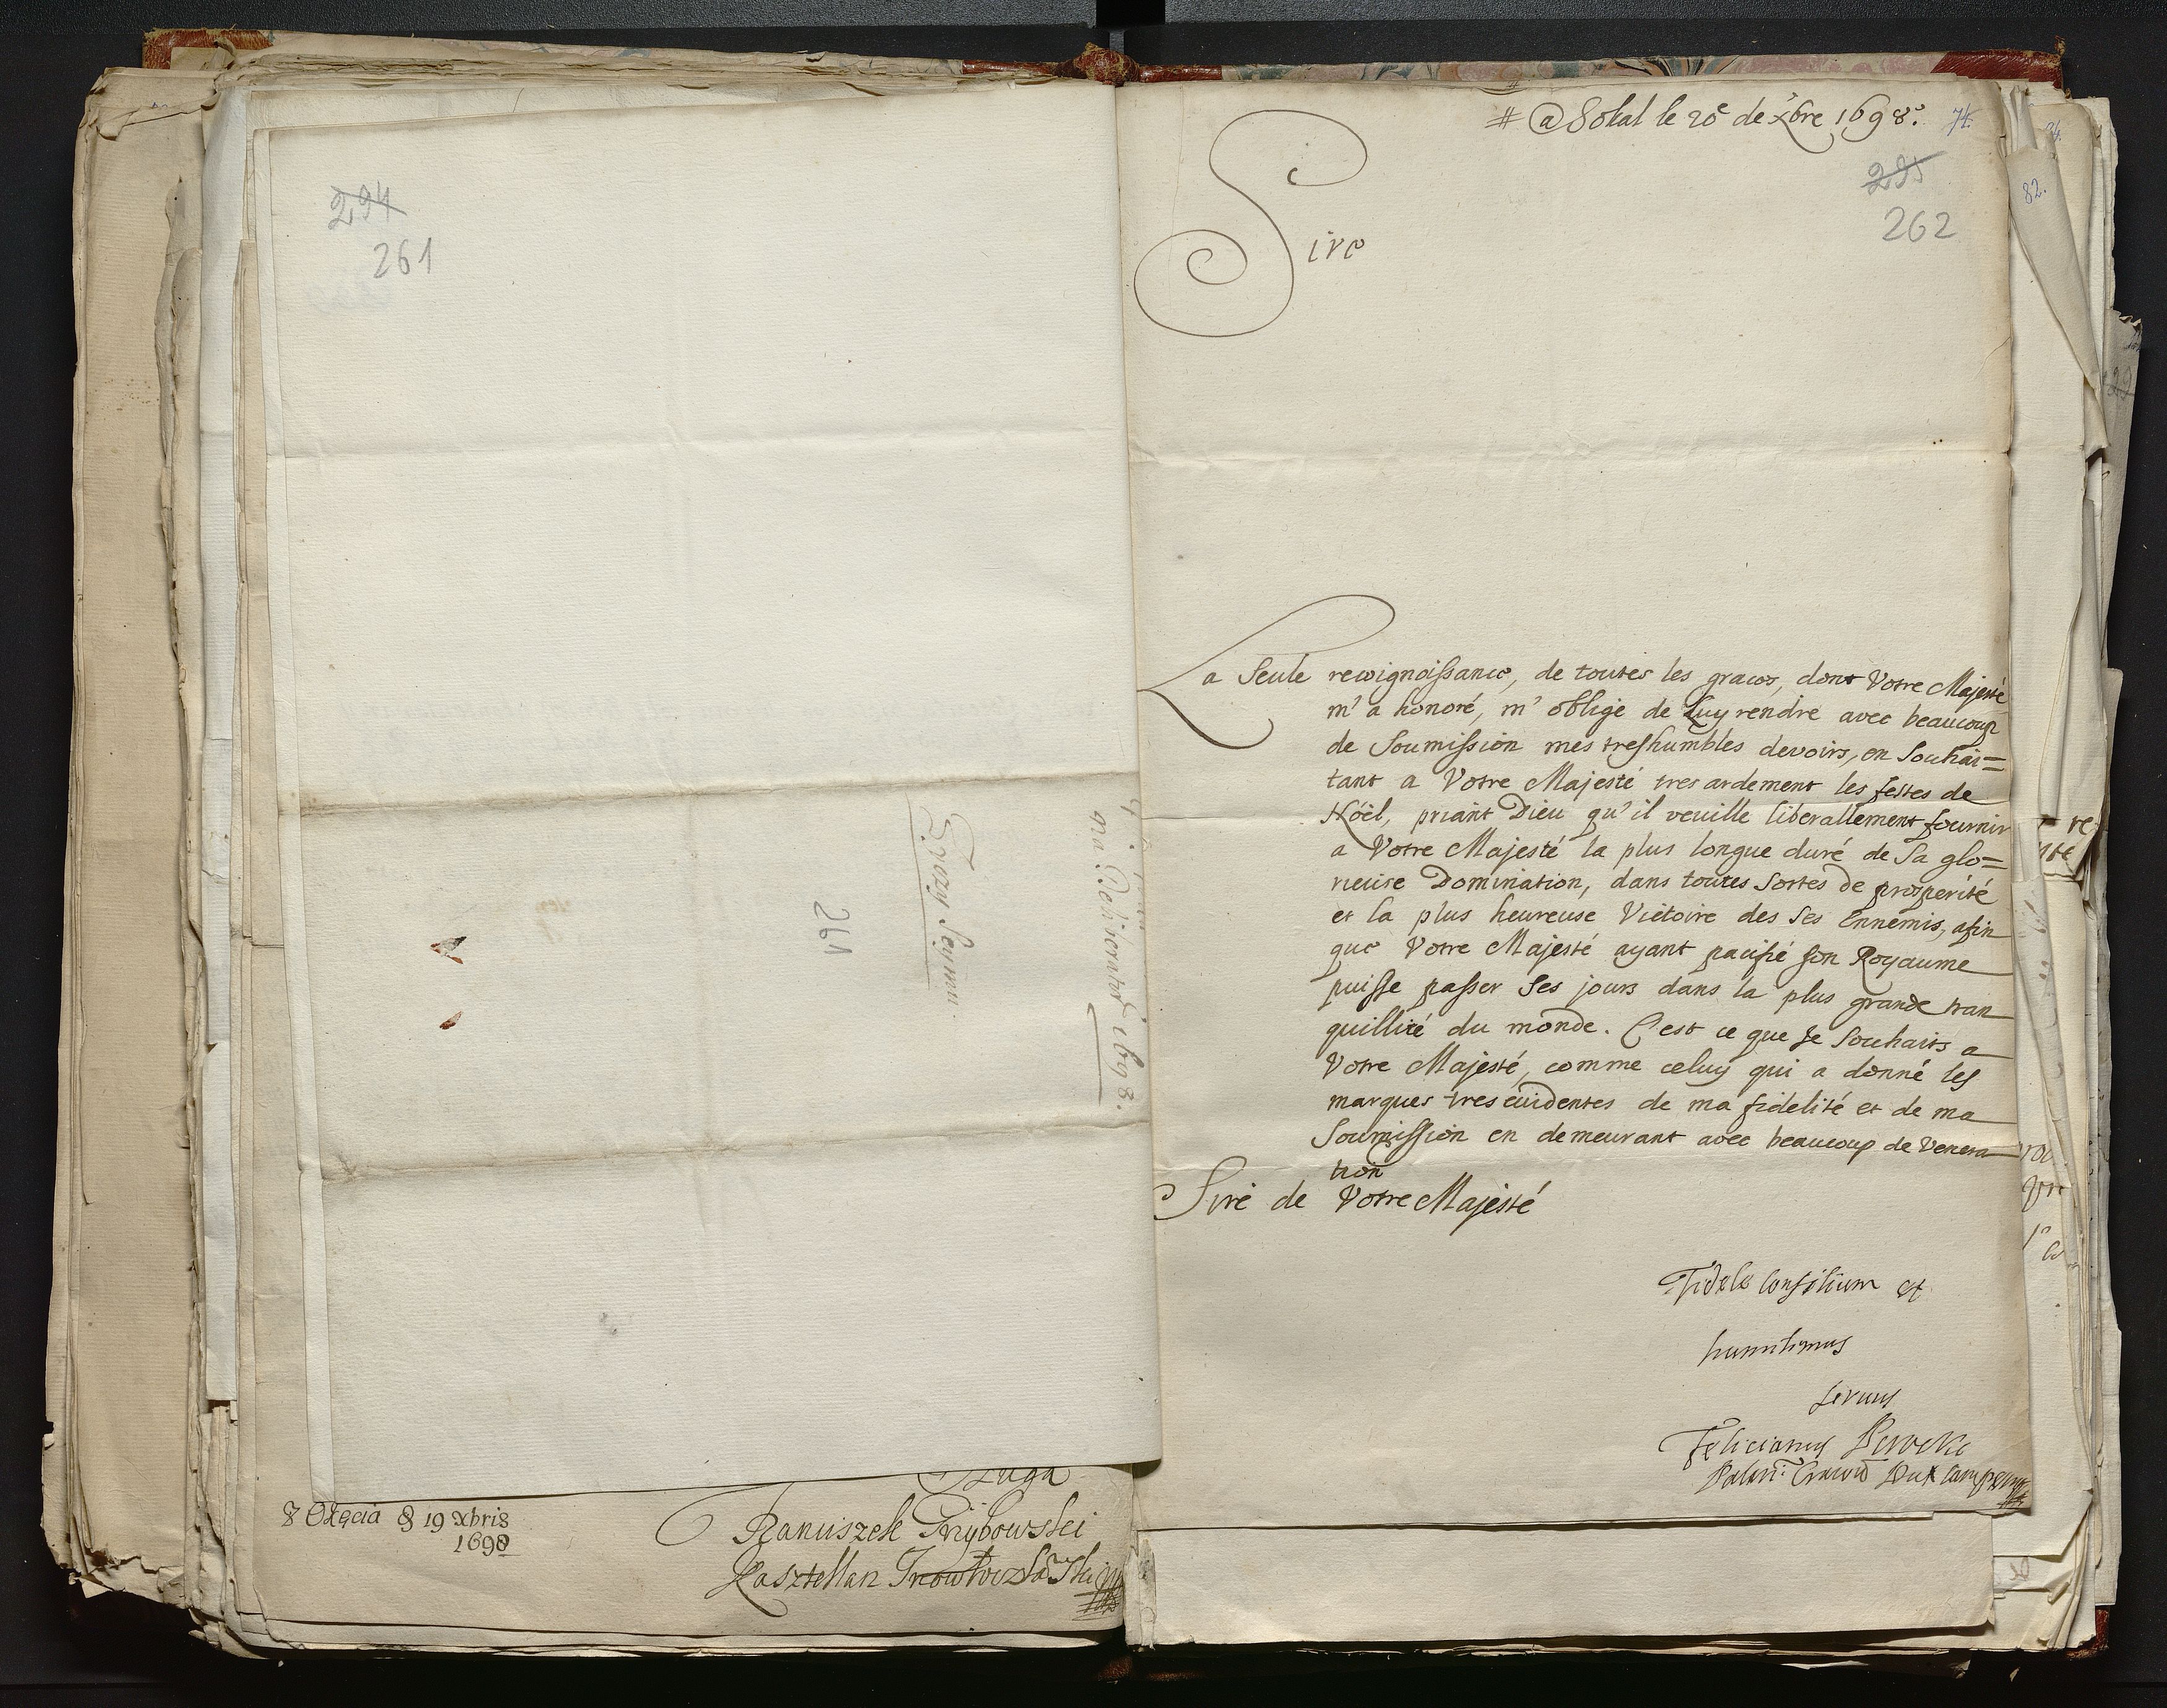 294
261
Przy Seymu
261
Sługa
Franciszek Przybowski
Kasztellan Inowłodzki
z Olęcia D 19 Xbris
1698
# @ Sokal le 20e de xbre 1698.
74.
295
262
Sire
La Seule recoignoissance, de toutes les graces, dont Votre Majesté
m'a honoré, m'oblige de Luy rendre avec beaucoup
de Soumission mes treshumbles devoirs, en Souhai=
tant a Votre Majesté tres ardement les festes de
Nöel, priant Dieu qu'il veuille liberallement fournir
a Votre Majesté la plus longue duré de Sa glo=
rieuse Domination, dans toutes Sortes de prosperité
et la plus heureuse Victoire des Ses Ennemis, afin
que Votre Majesté ayant pacifié son Royaume
puisse passer Ses jours dans la plus grande tran
quillité du monde. C'est ce que Je Souhaits a
Votre Majesté, comme celuy qui a donné les
marques tres euidentes de ma fidelité et de ma
Soumission en demeurant avec beaucoup de Venera
tion
Sire de Votre Majesté
Fidele Consilium et
humilimus
servus
Felicianus Potocki
Palati: Cracov Dux Campestris
82.